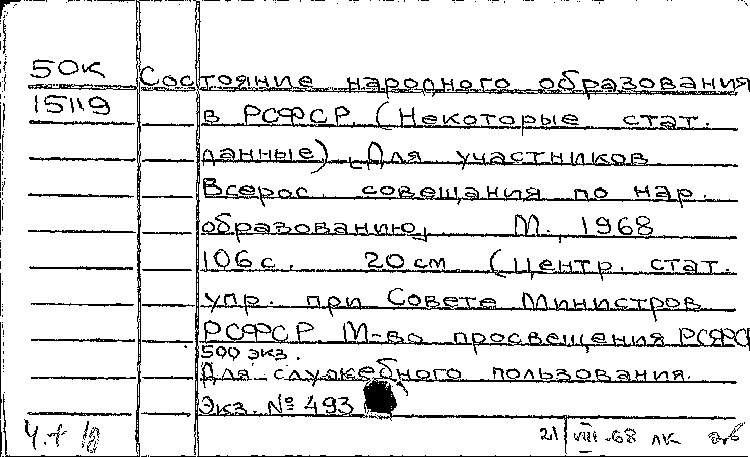 50к Состояние народного образования
15119 в РСФСР. (Некоторые стат.
данные). [Для участников
Всерос. совещания по нар.
образованию]. М., 1968
106 с. 20 см. (Центр. стат.
упр. при Совете Министров
РСФСР. М-во просвещения РСФСР
500 экз.
Для служебного пользования.
Экз. № 493
21/VIII-68 лк